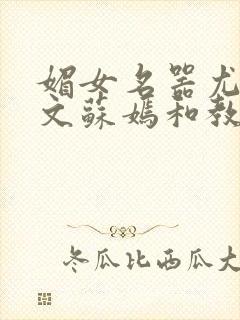 媚女名器尤
文蘇媽和教
冬瓜比西瓜大